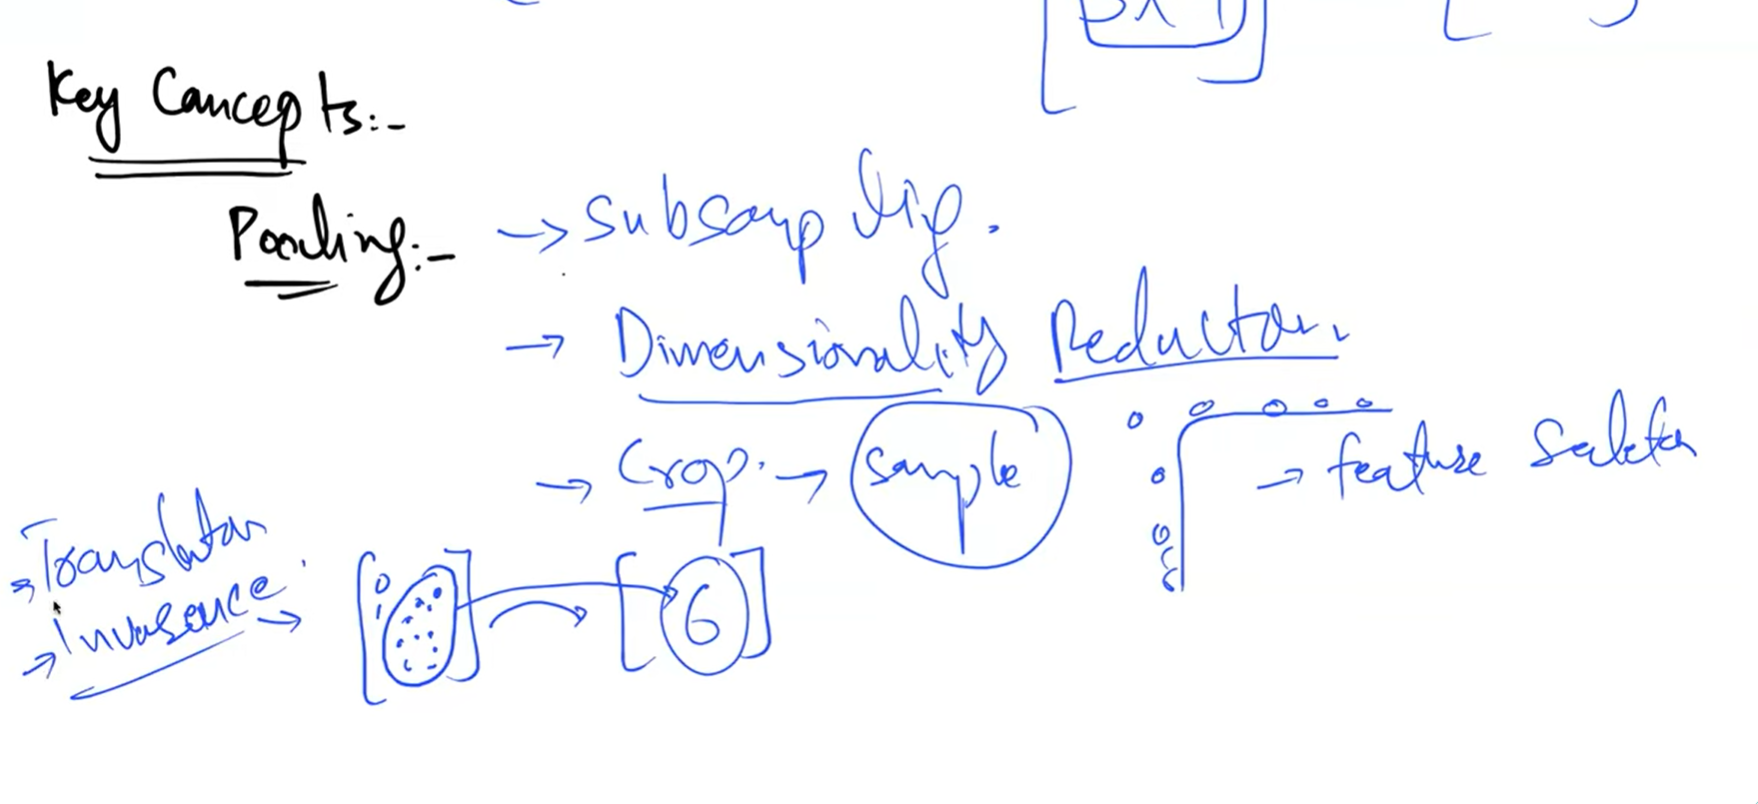 Key Concepts:-
Pooling:- → Subsampling.
→ Dimensionality Reduction.
→ Crop. → Sample
→ feature Selection
→ Translation
→ Invariance →
6